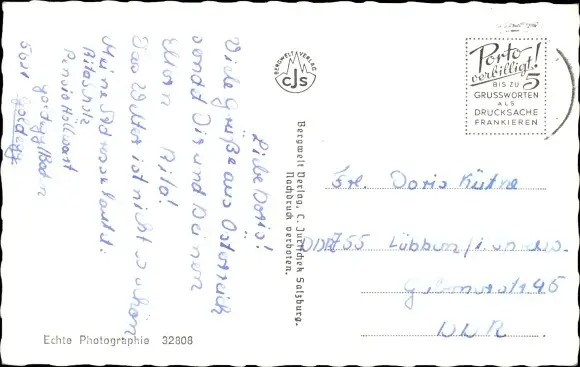 Liebe Doris!
Viele Grüße aus Österreich
sendet Dir und Deinen
Eltern Rita!
Das Wetter ist nicht so schön
Meine Adresse lautet:
Rita Scholz
Pension Hollwart
5631
BERGWELT VERLAG
CJS
Bergwelt Verlag, C. Jurischek Salzburg.
Nachdruck verboten.
Porto
verbilligt!
BIS ZU 5
GRUSSWORTEN
ALS
DRUCKSACHE
FRANKIEREN
Frl. Doris
DDR 755 Lübben/
DDR
Echte Photographie 32808